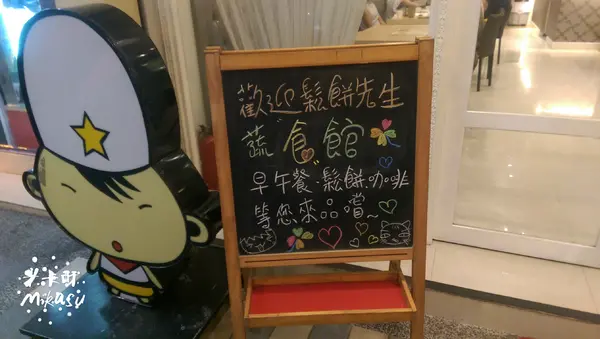 歡迎鬆餅先生
蔬"食"館
早午餐.鬆餅.咖啡
等您來品嚐~
米卡酥
Mikasu